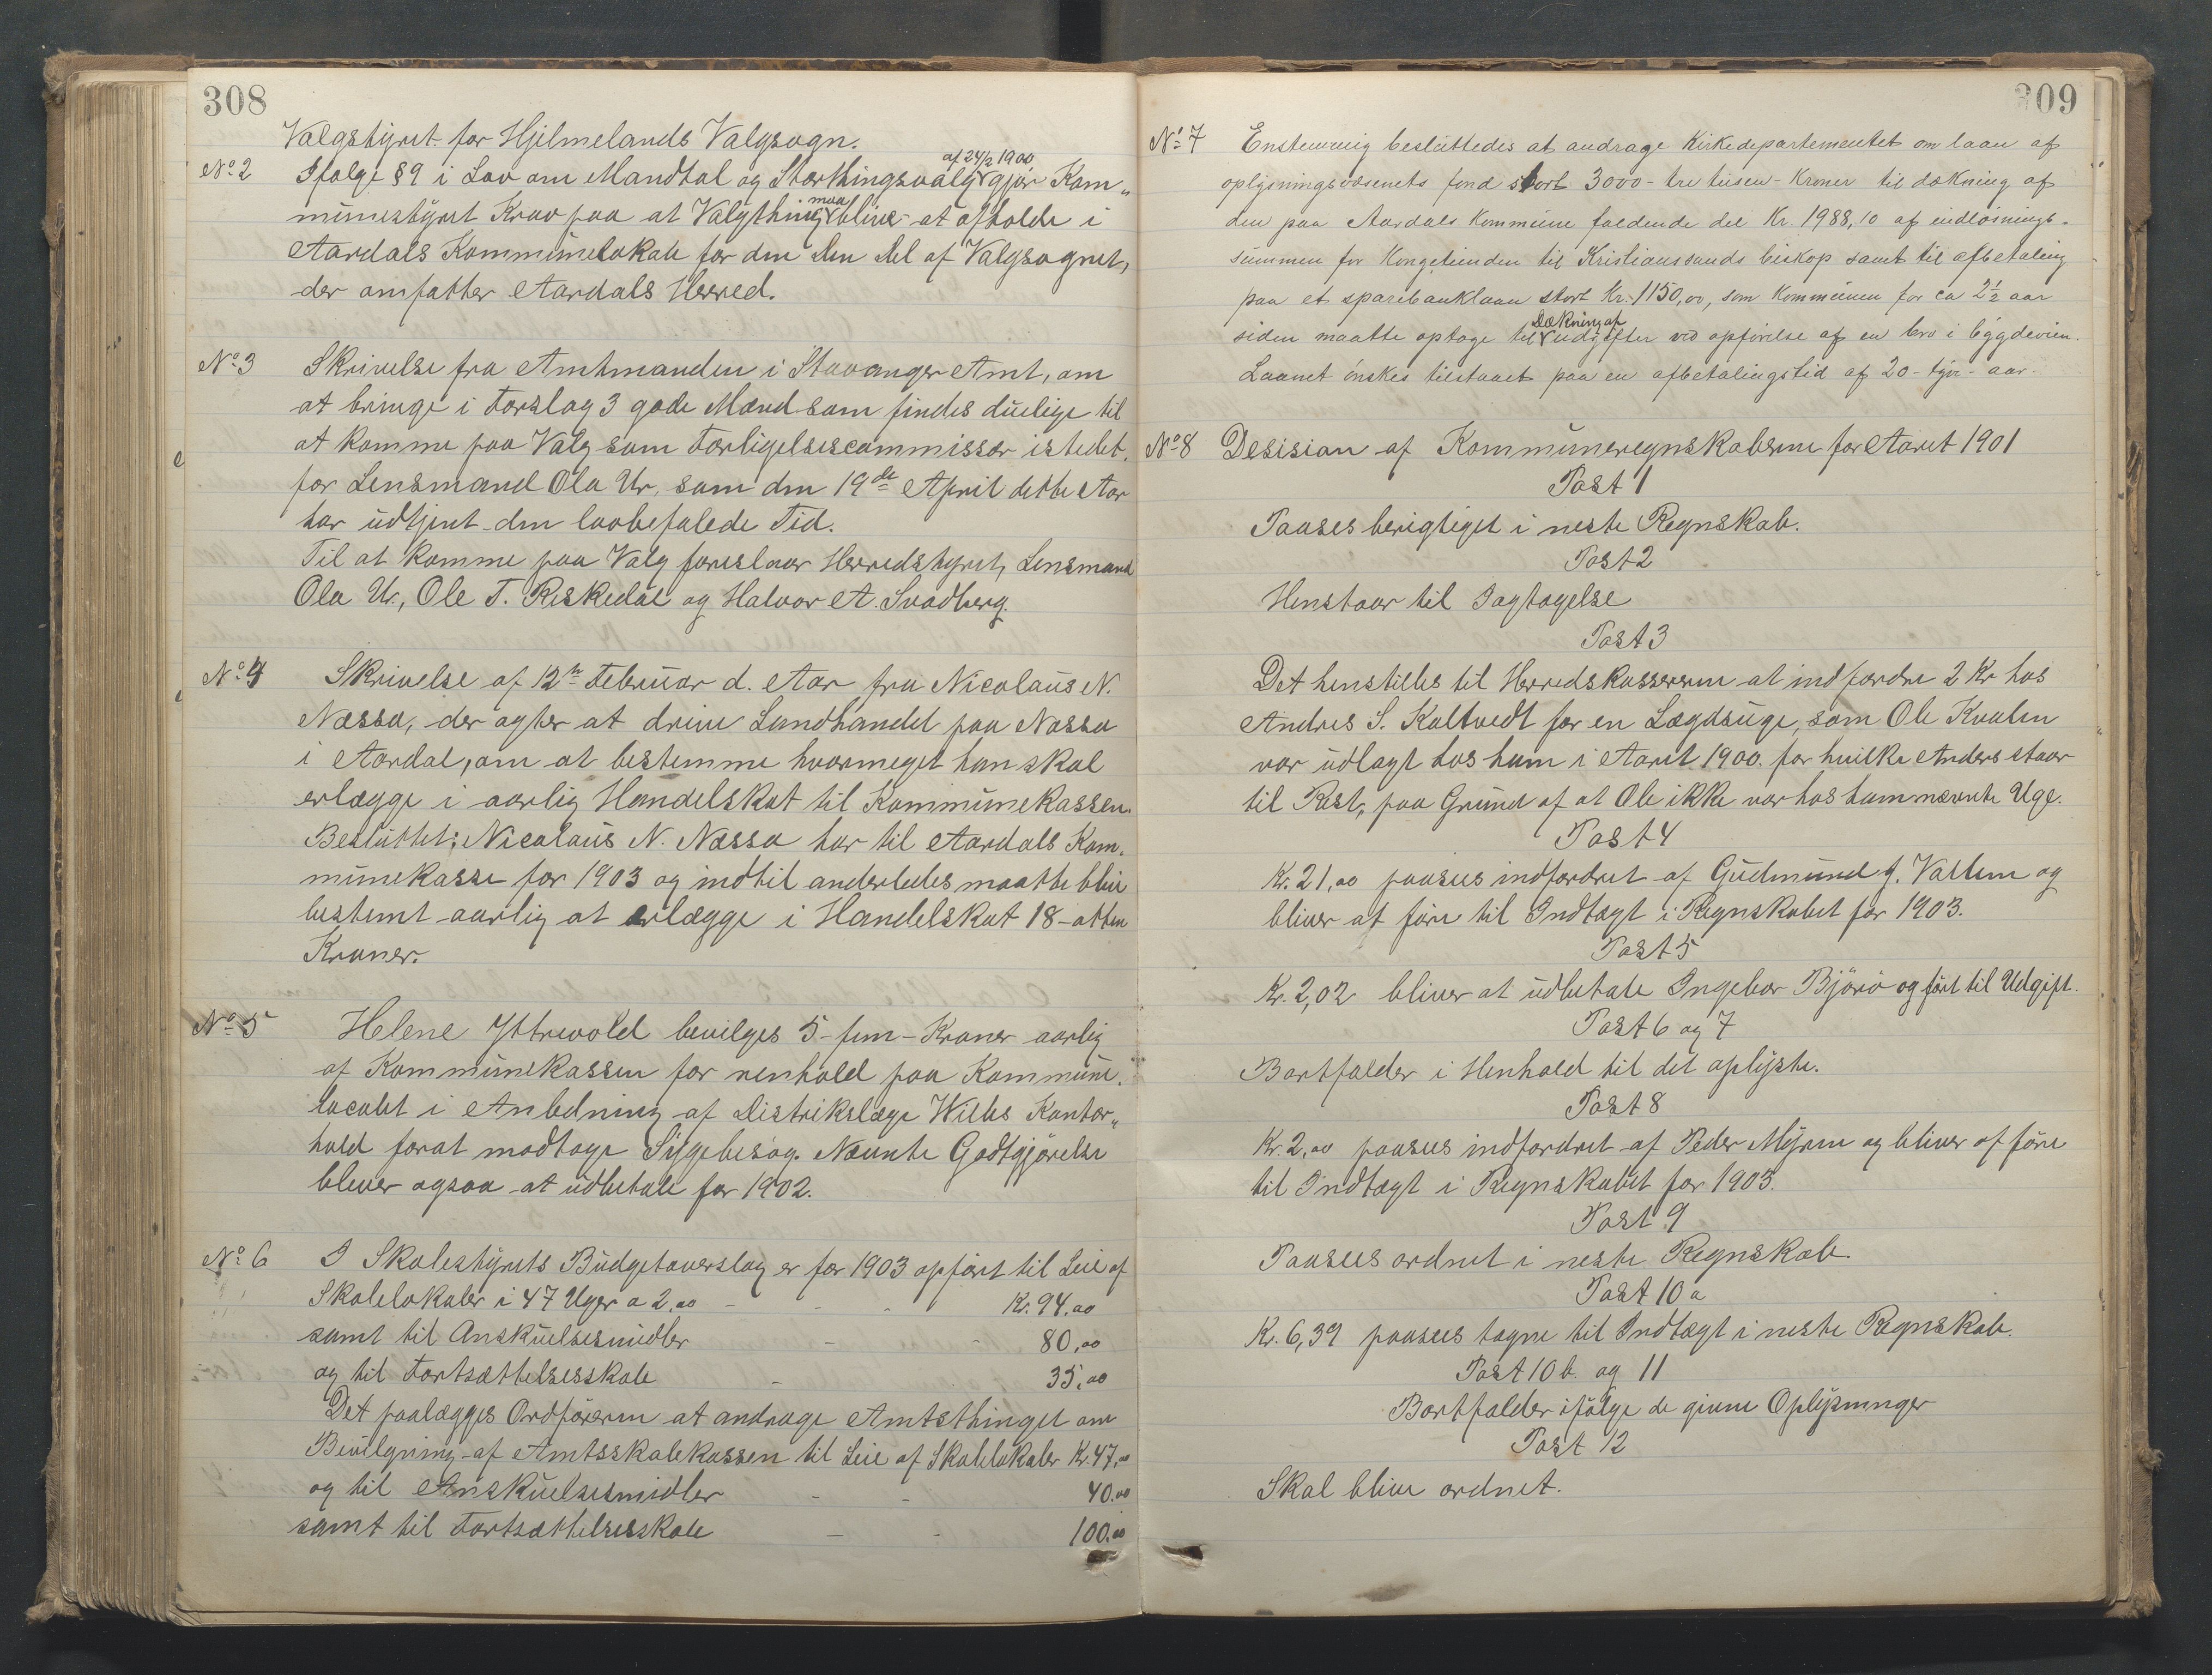 308
Valgstyret for Hjelmelands Valgsogn.
No 2 Ifølge §9 i Lov om Mandtal og Storthingsvalg af 24/2 1900 gjør Kom„
munestyret Krav paa at Valgthing maa blive at afholde i
Aardals Kommunelokale for den Den Del af Valgsognet,
der omfatter Aardals Herred.
No 3 Skrivelse fra Amtmanden i Stavanger Amt, om
at bringe i Forslag 3 gode Mænd som findes duelige til
at komme paa Valg som Forligelsescommissær istedet
for Lensmand Ola Ur, som den 19de April dette Aar
har udtjent den lovbefalede Tid.
Til at komme paa Valg foreslaar Herredstyret, Lensmand
Ola Ur, Ole T. Riskedal og Halvor A. Svadberg.
No 4 Skrivelse af 12te Februar d. Aar fra Nicolaus N.
Næssa, der agter at drive Landhandel paa Næssa
i Aardal, om at bestemme hvormeget han skal
erlægge i aarlig Handelskat til Kommunekassen.
Besluttet: Nicolaus N. Næssa har til Aardals Kom„
munekasse for 1903 og indtil anderledes maatte blive
bestemt aarlig at erlægge i Handelskat 18-atten
Kroner.
No 5 Helene Yttrevold bevilges 5-fem-Kroner aarlig
af Kommunekassen for renhold paa Kommune„
localet i Anledning af Distrikslæge Willes Kontor„
hold forat modtage Sygebesøg. Nævnte Godtgjørelse
bliver ogsaa at udbetale for 1902.
No 6 I Skolestyrets Budgetoverslag er for 1903 opført til Leie af
Skolelokaler i 47 Uger a 2,00 - - - Kr. 94,00
samt til Anskuelsesmidler - - 80,00
og til Fortsættelsesskole - - 35,00
Det paalægges Ordføreren at andrage Amtsthinget om
Bevilgning af Amtsskolekassen til Leie af Skolelokaler Kr. 47,00
og til Anskuelsesmidler - - 40,00
samt til Fortsættelsesskole - - 100,00
309
No 7 Enstemmig besluttedes at andrage Kirkedepartementet om laan af
oplysningsvæsenets fond stort 3000-tre tusen-Kroner til dækning af
den paa Aardals Kommune faldende del Kr. 1988,10 af indløsnings-
summen for Kongetienden til Kristianssands biskop samt til afbetaling
paa et sparebanklaan stort Kr. 1150,00, som Kommunen for ca 2½ aar
siden maatte optage til Dækning af udgifter ved opførelse af en bro i bygdeveien.
Laanet ønskes tilstaaet paa en afbetalingstid af 20-tyve-aar.
No 8 Desision af Kommuneregnskaberne for Aaret 1901
Post 1
Paases berigtiget i neste Regnskab.
Post 2
Henstaar til Iagtagelse
Post 3
Det henstilles til Herredskassereren at indfordre 2 Kr hos
Andres S. Kaltvedt for en Lægdsuge, som Ole Kvalen
var udlagt hos ham i Aaret 1900. for hvilke Anders staar
til Rest, paa Grund af at Ole ikke var hos ham nævnte Uge.
Post 4
Kr. 21,00 paasees indfordret af Gudmund J. Valheim og
bliver at føre til Indtægt i Regnskabet for 1903.
Post 5
Kr. 2,02 bliver at udbetale Ingebor Bjørø og ført til Udgift.
Post 6 og 7
Bortfalder i Henhold til det oplyste.
Post 8
Kr. 2,00 paasees indfordret af Peder Myren og bliver at føre
til Indtægt i Regnskabet for 1903.
Post 9
Paasees ordnet i neste Regnskab.
Post 10 a
Kr. 6,39 paasees tagne til Indtægt i neste Regnskab.
Post 10 b. og 11
Bortfalder ifølge de givne Oplysninger
Post 12
Skal blive ordnet.